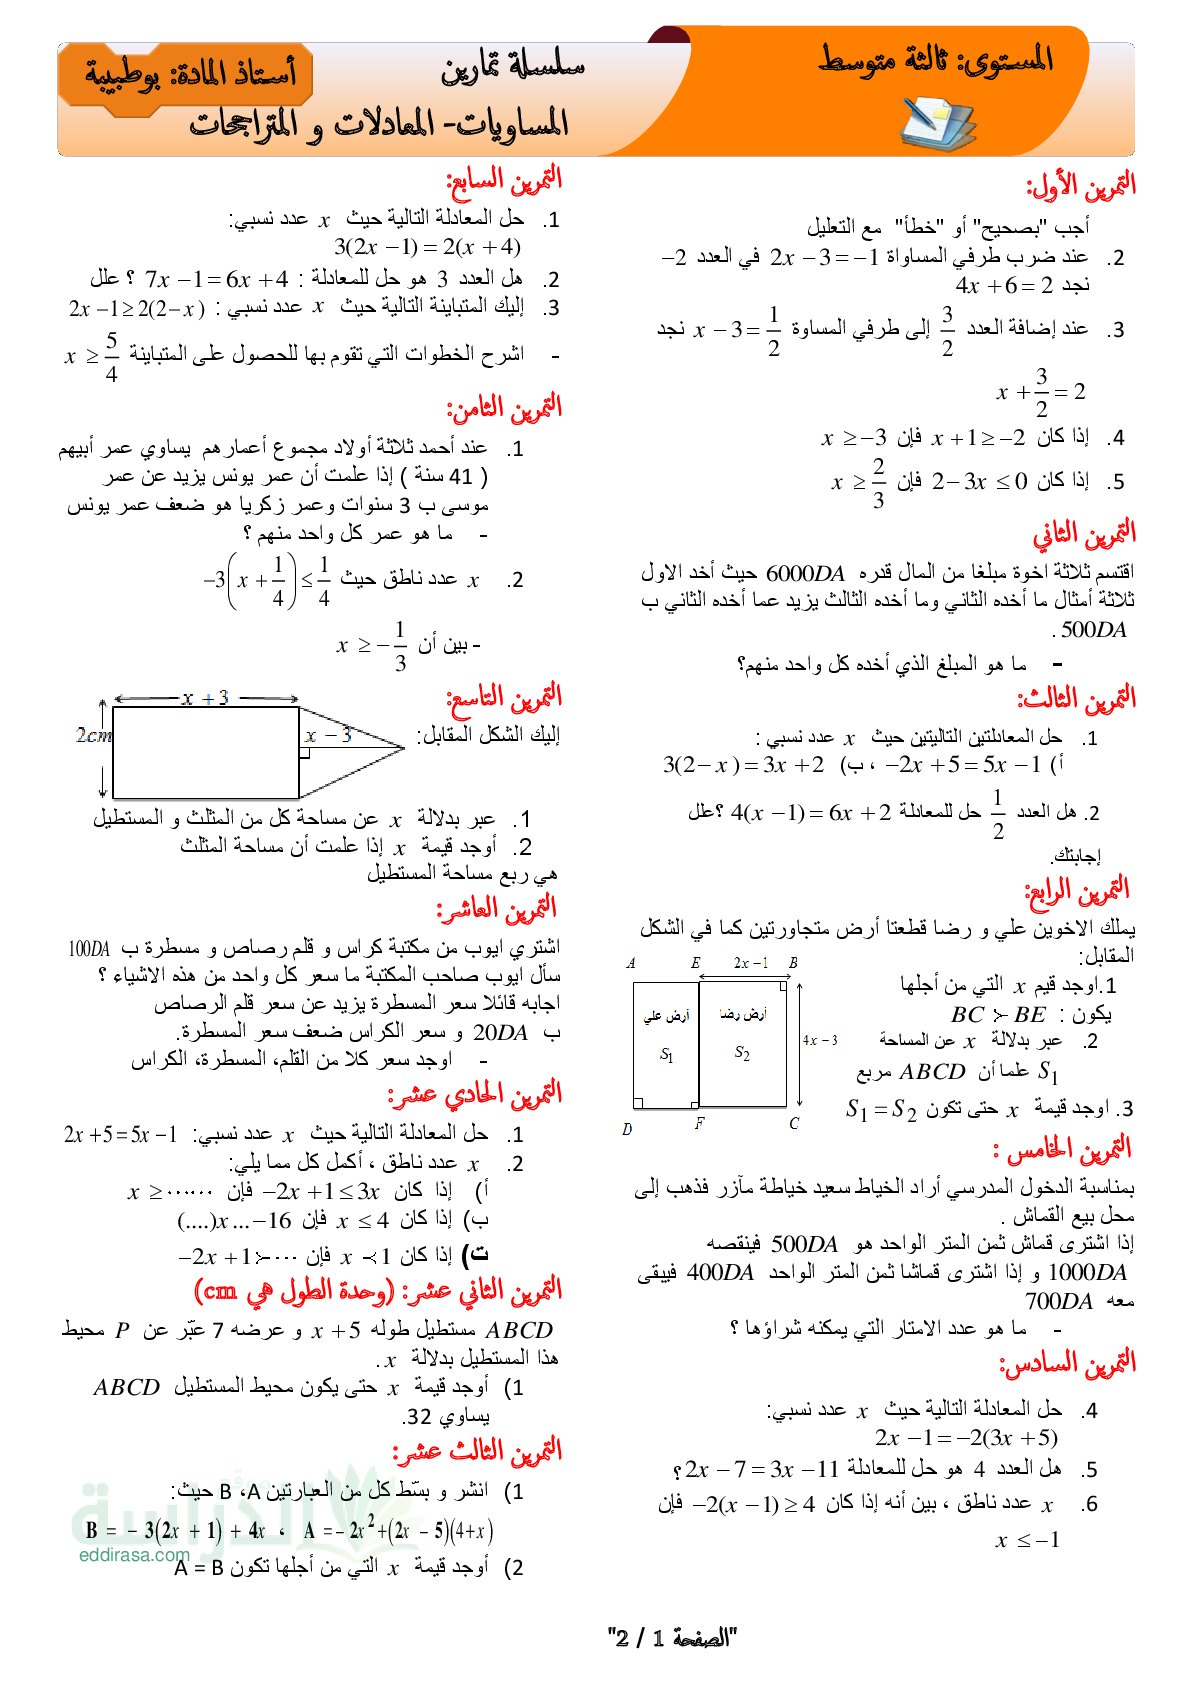 المستوى: ثالثة متوسط
سلسلة تمارين
أستاذ المادة: بوطبيبة
المساويات- المعادلات و المتراجحات
التمرين الأول:
أجب "بصحيح" أو "خطأ" مع التعليل
2. عند ضرب طرفي المساواة 2x − 3 = −1 في العدد −2
نجد 4x + 6 = 2
3. عند إضافة العدد 3/2 إلى طرفي المساوة x − 3 = 1/2 نجد
x + 3/2 = 2
4. إذا كان x + 1 ≥ −2 فإن x ≥ −3
5. إذا كان 2 − 3x ≤ 0 فإن x ≥ 2/3
التمرين الثاني
اقتسم ثلاثة اخوة مبلغا من المال قدره 6000DA حيث أخد الاول
ثلاثة أمثال ما أخده الثاني وما أخده الثالث يزيد عما أخده الثاني ب
500DA .
- ما هو المبلغ الذي أخده كل واحد منهم؟
التمرين الثالث:
1. حل المعادلتين التاليتين حيث x عدد نسبي :
أ) −2x + 5 = 5x − 1 ، ب) 3(2 − x) = 3x + 2
2. هل العدد 1/2 حل للمعادلة 4(x − 1) = 6x + 2 ؟علل
إجابتك.
التمرين الرابع:
يملك الاخوين علي و رضا قطعتا أرض متجاورتين كما في الشكل
المقابل:
1.اوجد قيم x التي من أجلها
يكون : BC ≻ BE
2. عبر بدلالة x عن المساحة
S1 علما أن ABCD مربع
3. اوجد قيمة x حتى تكون S1 = S2
A E 2x−1 B
أرض علي أرض رضا
S1 S2 4x−3
D F C
التمرين الخامس :
بمناسبة الدخول المدرسي أراد الخياط سعيد خياطة مآزر فذهب إلى
محل بيع القماش .
إذا اشترى قماش ثمن المتر الواحد هو 500DA فينقصه
1000DA و إذا اشترى قماشا ثمن المتر الواحد 400DA فيبقى
معه 700DA
- ما هو عدد الامتار التي يمكنه شراؤها ؟
التمرين السادس:
4. حل المعادلة التالية حيث x عدد نسبي:
2x − 1 = −2(3x + 5)
5. هل العدد 4 هو حل للمعادلة 2x − 7 = 3x − 11 ؟
6. x عدد ناطق ، بين أنه إذا كان −2(x − 1) ≥ 4 فإن
x ≤ −1
التمرين السابع:
1. حل المعادلة التالية حيث x عدد نسبي:
3(2x − 1) = 2(x + 4)
2. هل العدد 3 هو حل للمعادلة : 7x − 1 = 6x + 4 ؟ علل
3. إليك المتباينة التالية حيث x عدد نسبي : 2x − 1 ≥ 2(2 − x)
- اشرح الخطوات التي تقوم بها للحصول على المتباينة x ≥ 5/4
التمرين الثامن:
1. عند أحمد ثلاثة أولاد مجموع أعمارهم يساوي عمر أبيهم
( 41 سنة ) إذا علمت أن عمر يونس يزيد عن عمر
موسى ب 3 سنوات وعمر زكريا هو ضعف عمر يونس
- ما هو عمر كل واحد منهم ؟
2. x عدد ناطق حيث −3(x + 1/4) ≤ 1/4
- بين أن x ≥ −1/3
التمرين التاسع:
إليك الشكل المقابل:
x + 3
2cm
x − 3
1. عبر بدلالة x عن مساحة كل من المثلث و المستطيل
2. أوجد قيمة x إذا علمت أن مساحة المثلث
هي ربع مساحة المستطيل
التمرين العاشر:
اشتري ايوب من مكتبة كراس و قلم رصاص و مسطرة ب 100DA
سأل ايوب صاحب المكتبة ما سعر كل واحد من هذه الاشياء ؟
اجابه قائلا سعر المسطرة يزيد عن سعر قلم الرصاص
ب 20DA و سعر الكراس ضعف سعر المسطرة.
- اوجد سعر كلا من القلم، المسطرة، الكراس
التمرين الحادي عشر:
1. حل المعادلة التالية حيث x عدد نسبي: 2x + 5 = 5x − 1
2. x عدد ناطق ، أكمل كل مما يلي:
أ) إذا كان −2x + 1 ≤ 3x فإن x ≥ ......
ب) إذا كان x ≤ 4 فإن (....)x ... −16
ت) إذا كان x ≺ 1 فإن −2x + 1 ≻ ....
التمرين الثاني عشر: (وحدة الطول هي cm)
ABCD مستطيل طوله x + 5 و عرضه 7 عبّر عن P محيط
هذا المستطيل بدلالة x .
1) أوجد قيمة x حتى يكون محيط المستطيل ABCD
يساوي 32.
التمرين الثالث عشر:
1) انشر و بسّط كل من العبارتين B ،A حيث:
B = − 3(2x + 1) + 4x ، A = − 2x² + (2x − 5)(4 + x)
2) أوجد قيمة x التي من أجلها تكون A = B
الدراسة
eddirasa.com
"الصفحة 1 / 2"